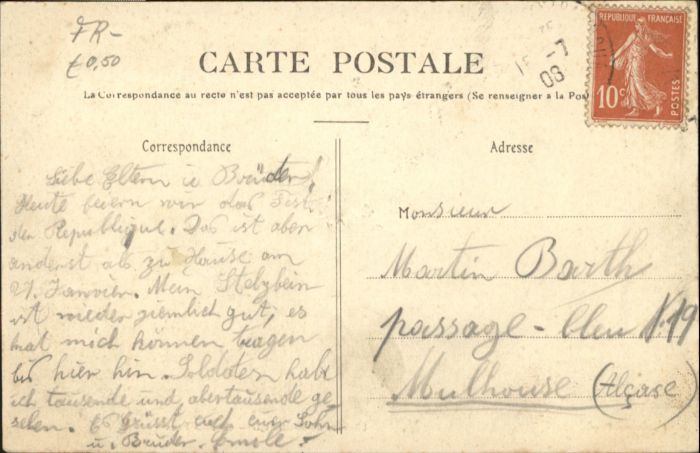 FR-
£0,50
CARTE POSTALE
La Correspondance au recto n'est pas acceptée par tous les pays étrangers (Se renseigner a la Pos
REPUBLIQUE FRANÇAISE
10c
POSTES
-7
08
Correspondance
Adresse
Liebe Eltern u Brüder!
Heute feiern wir das Fest
der Republique. Das ist aber
anderst als zu Hause am
27. Janvier. Mein Stelzbein
ist wieder ziemlich gut, es
hat mich können tragen
bis hier hin. Soldaten habe
ich tausende und abertausende ge
sehen. Es Grüsst euch euer Sohn
u. Bruder. Emile.
Monsieur
Martin Barth
passage-bleu N.19
Mulhouse (Alçase)